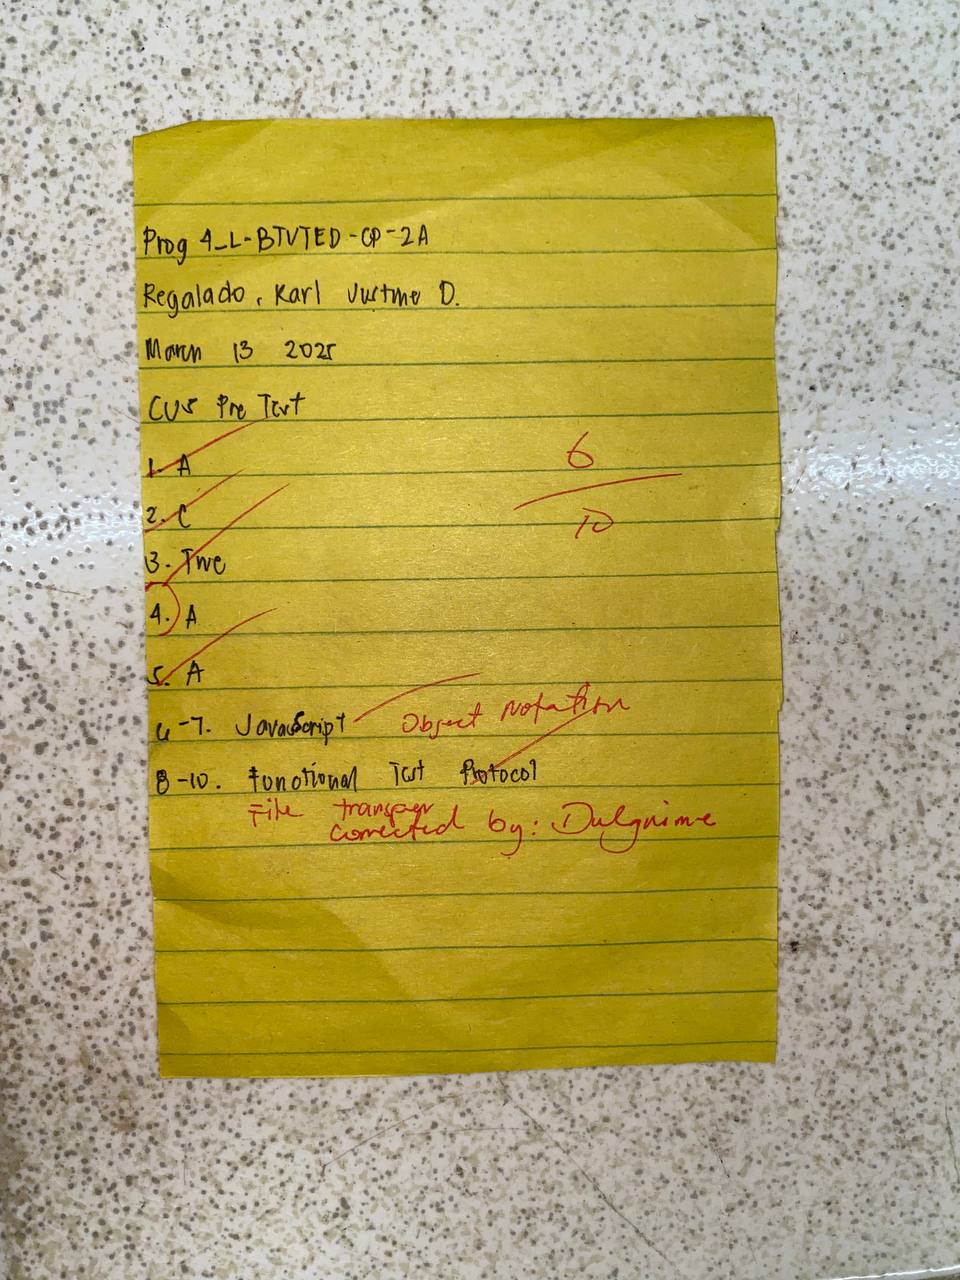 Prog 4_L-BTVTED-CP-2A
Regalado, Karl Justine D.
March 13 2025
CUS Pre Test
1. A
6
2. C
10
3. True
4. A
5. A
6-7. JavaScript Object Notation
8-10. Functional Test Protocol
File transper
corrected by: Dulguime